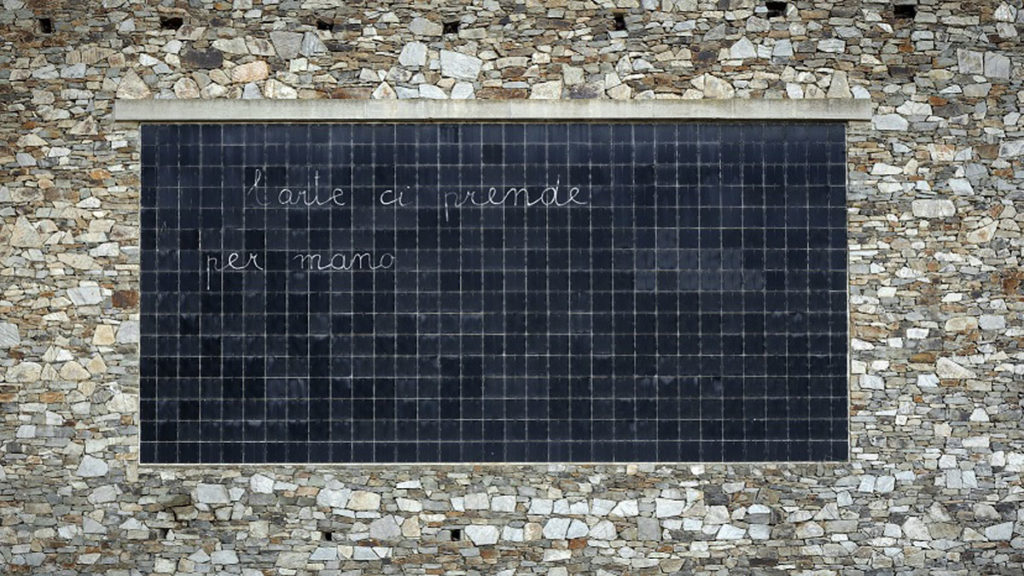 l'arte ci prende
per mano